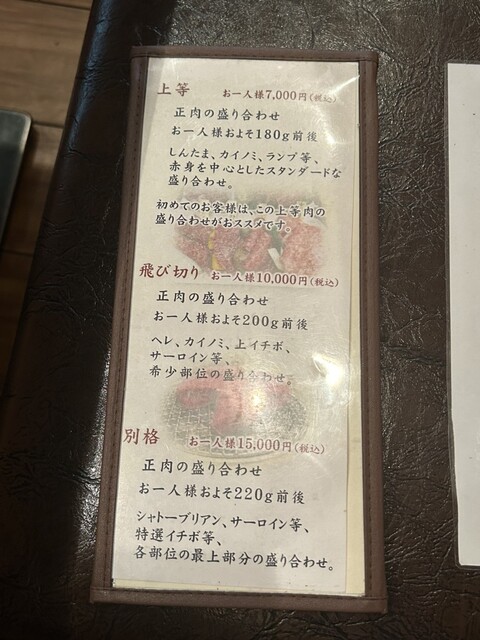 上等 お一人様7,000円(税込)
正肉の盛り合わせ
お一人様およそ180g前後
しんたま、カイノミ、ランプ等、
赤身を中心としたスタンダードな
盛り合わせ。
初めてのお客様は、この上等肉の
盛り合わせがおススメです。
飛び切り お一人様10,000円(税込)
正肉の盛り合わせ
お一人様およそ200g前後
ヘレ、カイノミ、上イチボ、
サーロイン等、
希少部位の盛り合わせ。
別格 お一人様15,000円(税込)
正肉の盛り合わせ
お一人様およそ220g前後
シャトーブリアン、サーロイン等、
特選イチボ等、
各部位の最上部分の盛り合わせ。